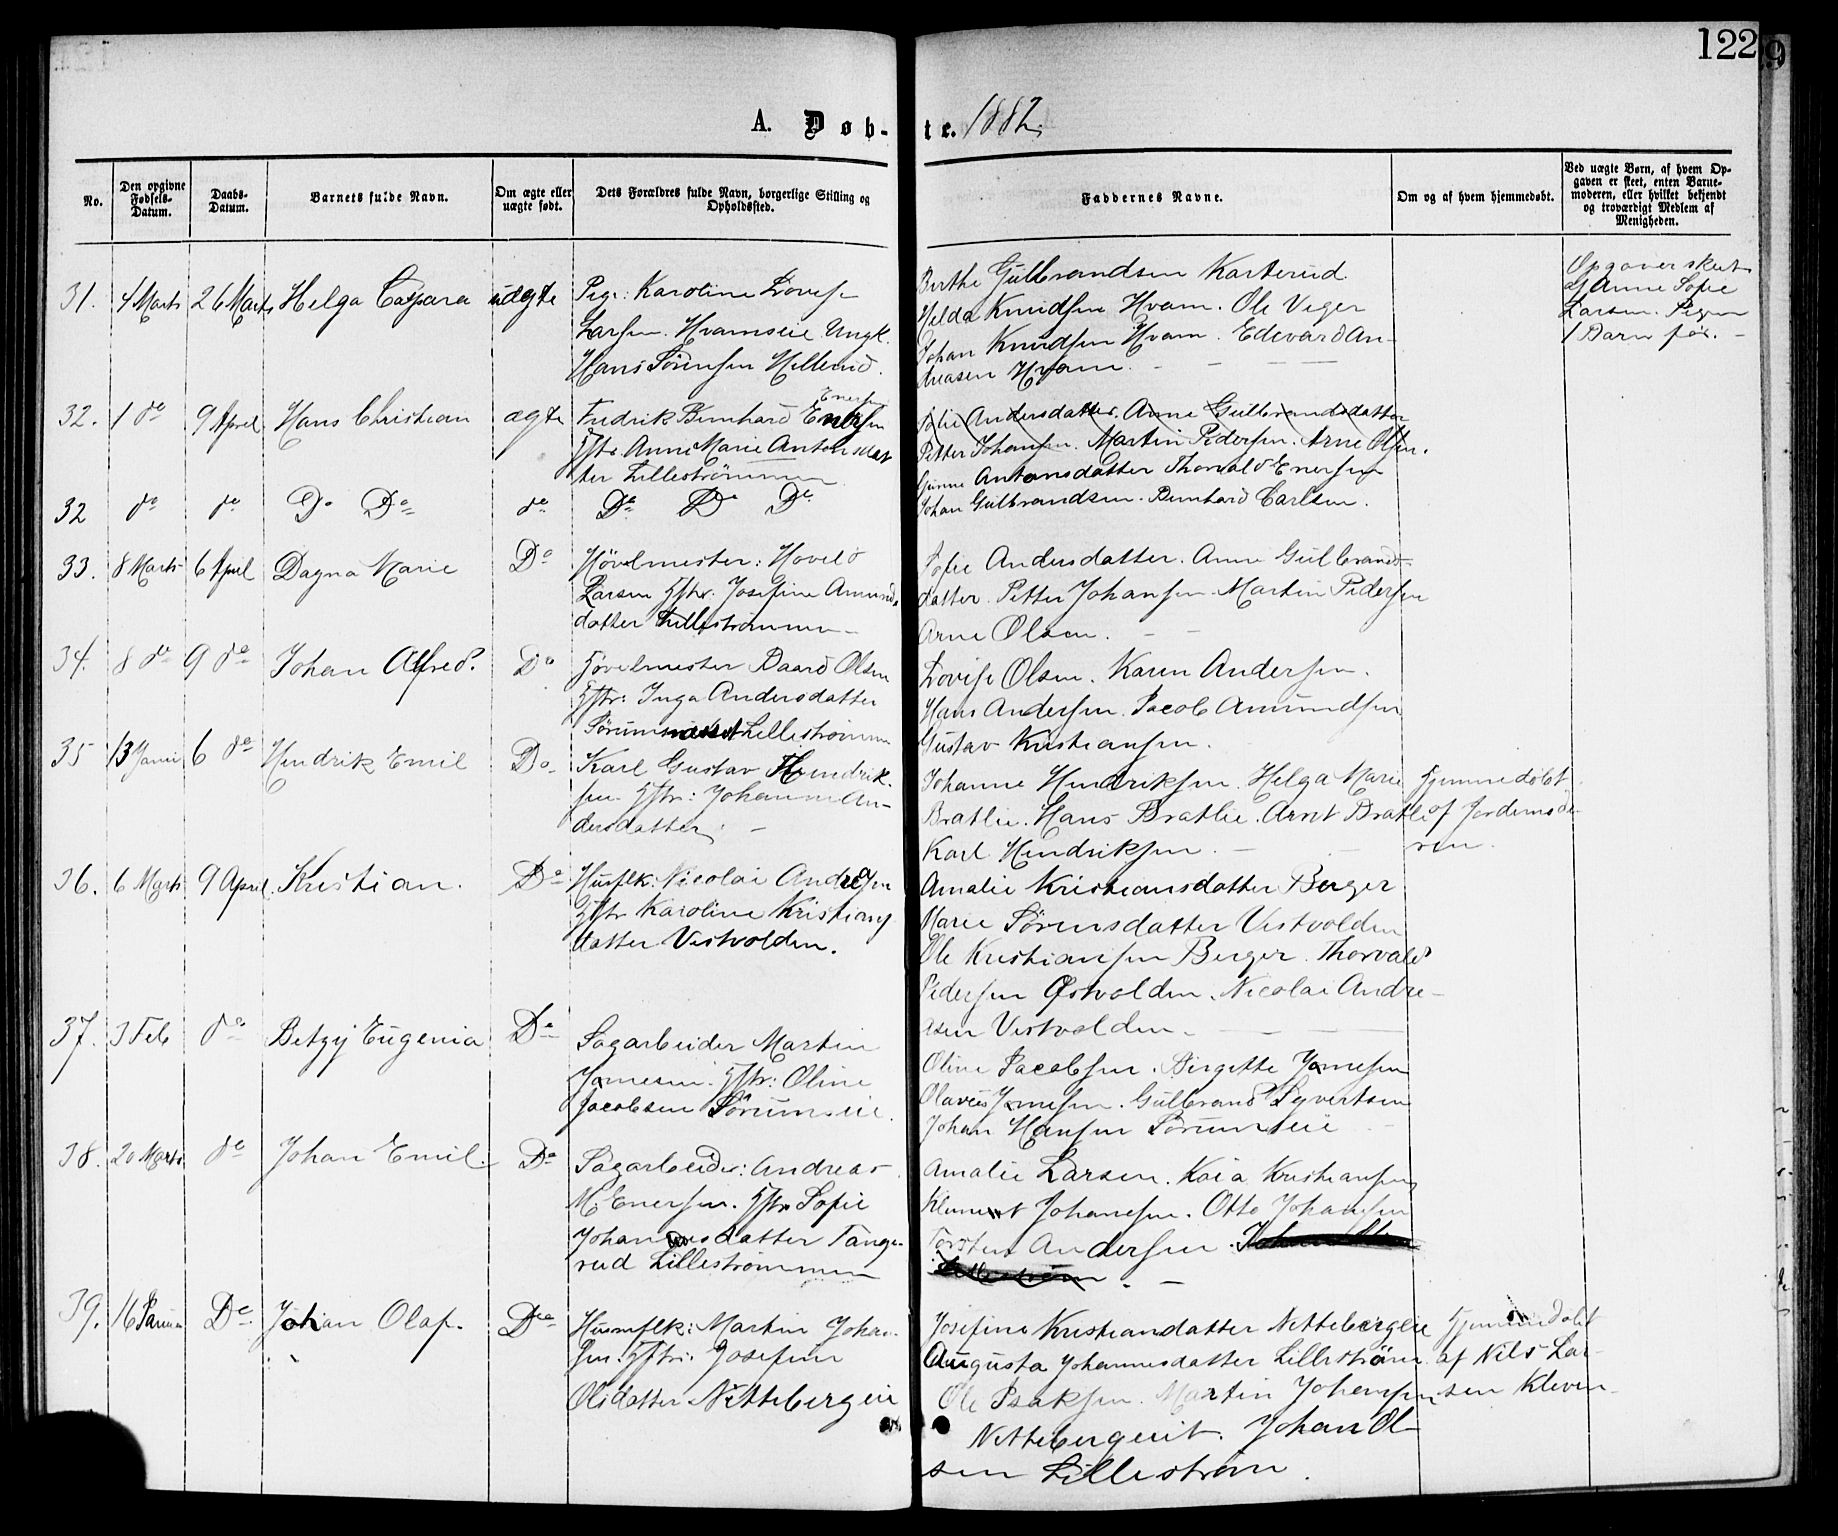 122
9
A. Døb-
te. 1882.
No.
Den opgivne Fødsels-Datum.
Daabs-Datum.
Barnets fulde Navn.
Om ægte eller uægte født.
Dets Forældres fulde Navn, borgerlige Stilling og Opholdssted.
Faddernes Navne.
Om og af hvem hjemmedøbt.
Ved uægte Børn, af hvem Opgaven er skeet, enten Barnemoderen, eller hvilket bekjendt og troværdigt Medlem af Menigheden.
31. 4 Marts 26 Marts Helga Caspara uægte Pige: Karoline Lovise
Larsen. Hvamseie. Ungk.
Hans Sörensen Hillerud.
Berthe Gulbrandsen Karterud.
Hilda Knudsen Hvam. Ole Veger
Johan Knudsen Hvam. Edevard An-
dreasen Hvam.
Opgaver skeet
af Anne Sofie
Larsen. Pigen
1 Barn før.
32. 1 do 9 April Hans Christian ægte Fredrik Bernhard Enersen
Enersen
Hstr. Anne Marie Antonsdat
ter Lilleströmmen
Sofie Andersdatter. Anne Gulbrandsdatter
Petter Johansen. Martin Pedersen. Arne Olsen.
Gunne Antonsdatter Thorvald Enersen
Johan Gulbrandsen. Bernhard Carlsen.
32 do do Do Do do Do Do Do
33. 8 Marts 6 April Dagna Marie Do Hövelmester: Hoveld
Larsen Hstr. Josefine Amunds
datter Lilleströmmen
Sofie Andersdatter. Anne Gulbrands-
datter. Petter Johansen. Martin Pedersen
Arne Olsen.
34. 8 do 9 do Johan Alfred. Do Hövelmester Baard Olsen
Hstr: Inga Andersdatter
Lilleströmmen
Lovise Olsen. Karen Andersen.
Hans Andersen. Jacob Amundsen
Gustav Kristiansen.
35 13 Janu 6 do Hendrik Emil Do Karl Gustav Hendrik-
sen Hstr: Johanne An-
dersdatter.
Johanne Hendriksen. Helga Marie
Bratlie. Hans Bratlie. Arnt Bratli
Karl Hendriksen.
Hjemmedøbt
af Jordemode
ren.
36. 6 Marts 9 April Kristian. Do Husflk: Nicolai Andresen
Hstr Karoline Kristians
datter Vestvolden.
Amalie Kristiansdatter Berger
Marie Sörensdatter Vestvolden
Ole Kristiansen Berger. Thorvald
Pedersen Østvolden. Nicolai Andre-
asen Vestvolden.
37. 3 Feb do Betzy Eugenia Do Sagarbeider Martin
Jornesen. Hstr: Oline
Jacobsen Sörumseie.
Oline Jacobsen. Birgitte Jornesen
Olaves Jornesen. Gulbrand Syvertsen
Johan Hansen Sörumseie
38. 20 Marts do Johan Emil. Do Sagarbeider: Andreas
M. Enersen. Hstr Sofie
Johannesdatter Tange-
rud Lilleströmmen
Amalie Larsen. Kaia Kristiansen
Klement Johansen. Otto Johansen
Torsten Andersen.
39. 16 Janua Do Johan Olaf. Do Husmflk: Martin Johan-
sen. Hstr: Josefine
Olsdatter Nittebergeie
Josefine Kristiandatter Nittebergeie
Augusta Johannesdatter Lilleström
Ole Isaksen. Martin Johansen
Nittebergeiet. Johan Ol-
sen Lilleström.
Hjemmedøbt
af Nils Lar-
sen Kleven